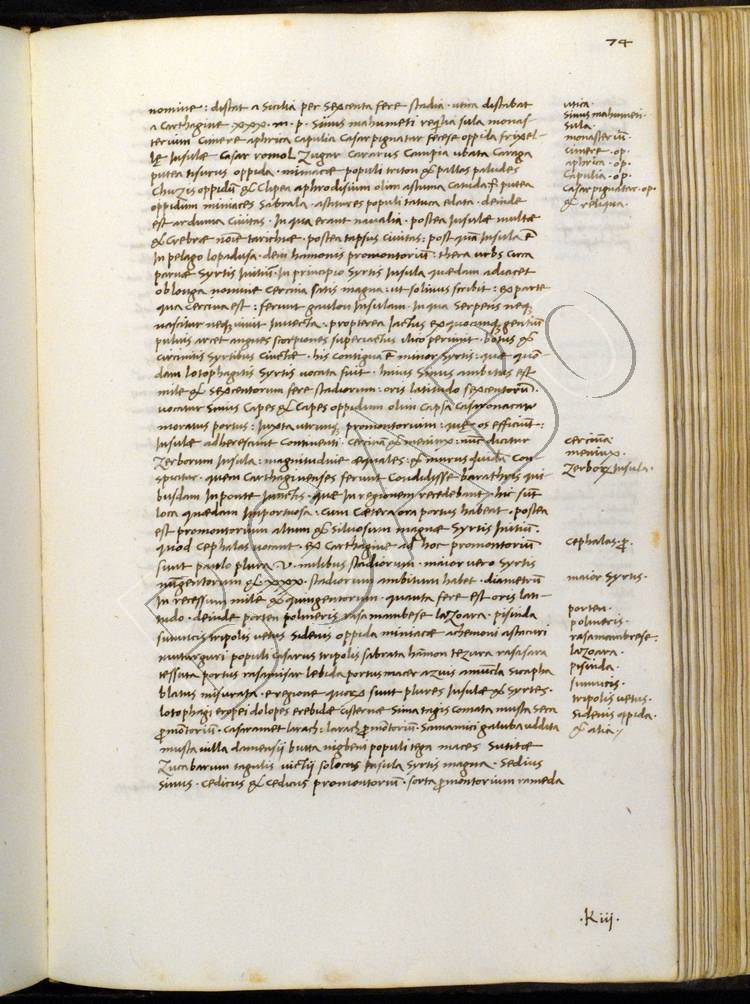 74
nomine : distat a Sicilia per Sexcenta fere stadia · utica distabat
a Carthagine xxx · m · p · Sinus mahumeti reglia sula monas-
terium Cimere aphrica Capulia Casar pignatar ferese oppida frixel-
le Insulæ Casar romol Zugar Cararus Campia ubata Caraga
putea tisurus oppida · miniacæ populi triton & pallas paludes
Chuzis oppidū & Clipea aphrodisium olim astuma putea
oppidum miniaces Sabrala · astures populi elata · deinde
est arduma Civitas · In qua erant navalia · postea Insulæ multæ
& Crebræ noīe tarichiæ · postea tapsus Civitas : post quā Insula ē
In pelago lopadusa · dein hamonis promontoriū : thera urbs Circa
parvæ Syrtis Initiū · In principio Syrtis Insula quædam adiacet
oblonga nomine Cercina satis magna : ut solinus scribit : ex parte
qua Cercina est : ferunt gaulon Insulam · In qua Serpens neq
nascitur neq vivit Invecta · propterea Iactus ex quocunq gentiū
pulvis arcet angues scorpiones superiactus illico perimit ·
circinitis Syrtibus · his contigua ē minor Syrtis : quæ quō-
dam lotophagitis Syrtis vocata fuit · huius Sinus ambitus est
mile & Sexcentorum fere stadiorum : oris latitudo sexcentorū ·
vocatur Sinus Capes & Capes oppidum olim Capsa Casaronacaræ
moratus portus : Iuxta utrunq promontorium : quæ os efficiūt :
Insulæ adherescunt Continenti · Cercina & menimo : nūc dicitur
Zerborum Insula : magnitudine æquales : & murus quidā Con
spicitur · quem Carthaginenses ferunt Condidisse barathris qui-
busdam In ponte Iunctis · quæ In regionem recedebant · hic sūt
loca quædam Importuosa : cum Cætera ora portus habeat · postea
est promontorium altum & Silvosum magnæ Syrtis Initiū ·
quod Cephalas vocant · ex Carthagine ad hoc promontoriū
sunt paulo plura v · milibus stadiorum · maior vero Syrtis
nūgentorum & xxx · stadiorum ambitum habet · diametrū
In recessum mile & quingentorum · quanta fere est oris lati-
tudo · deinde portea polmeris rasamambese lazoara · pisinda
simucis tripolis vetus Sidenis oppida miniacæ achemoni astacuri
muturguri populi Casarus tripolis sabrata hāmon tezura rasasara
tessuta portus rasamisar lebida portus macer azuis
blatus misurata · e regione quoq sunt plures Insulæ & Syrtes ·
lotophagi exopei dolopes erebidæ cisternæ Sima tagis comata musta seca
p̄montoriū · casaramet larach : larach p̄mōtoriū · Samamici galuba udditta
musta villa damensii butta nigbeni populi tega maces Sutitæ
Zucabarum tagulis vichii solocus Insula Syrtis magna · Sedius
sinus · Cedicus & Cedicus promontoriū · sorta promontorium rameda
utica ·
Sinus mahumeti ·
Sula ·
monasteriū ·
cimere · op ·
aphrica · op ·
Capulia · op ·
Casar pignatar · op ·
& reliqua ·
cercina ·
meninx ·
Zerborꝝ Insula ·
Cephalas · p̄ ·
maior Syrtis ·
portea ·
polmeris ·
rasamambrese ·
lazoara ·
pisinda ·
simucis ·
tripolis vetus ·
Sidenis oppida ·
& alia ·
· K iij ·